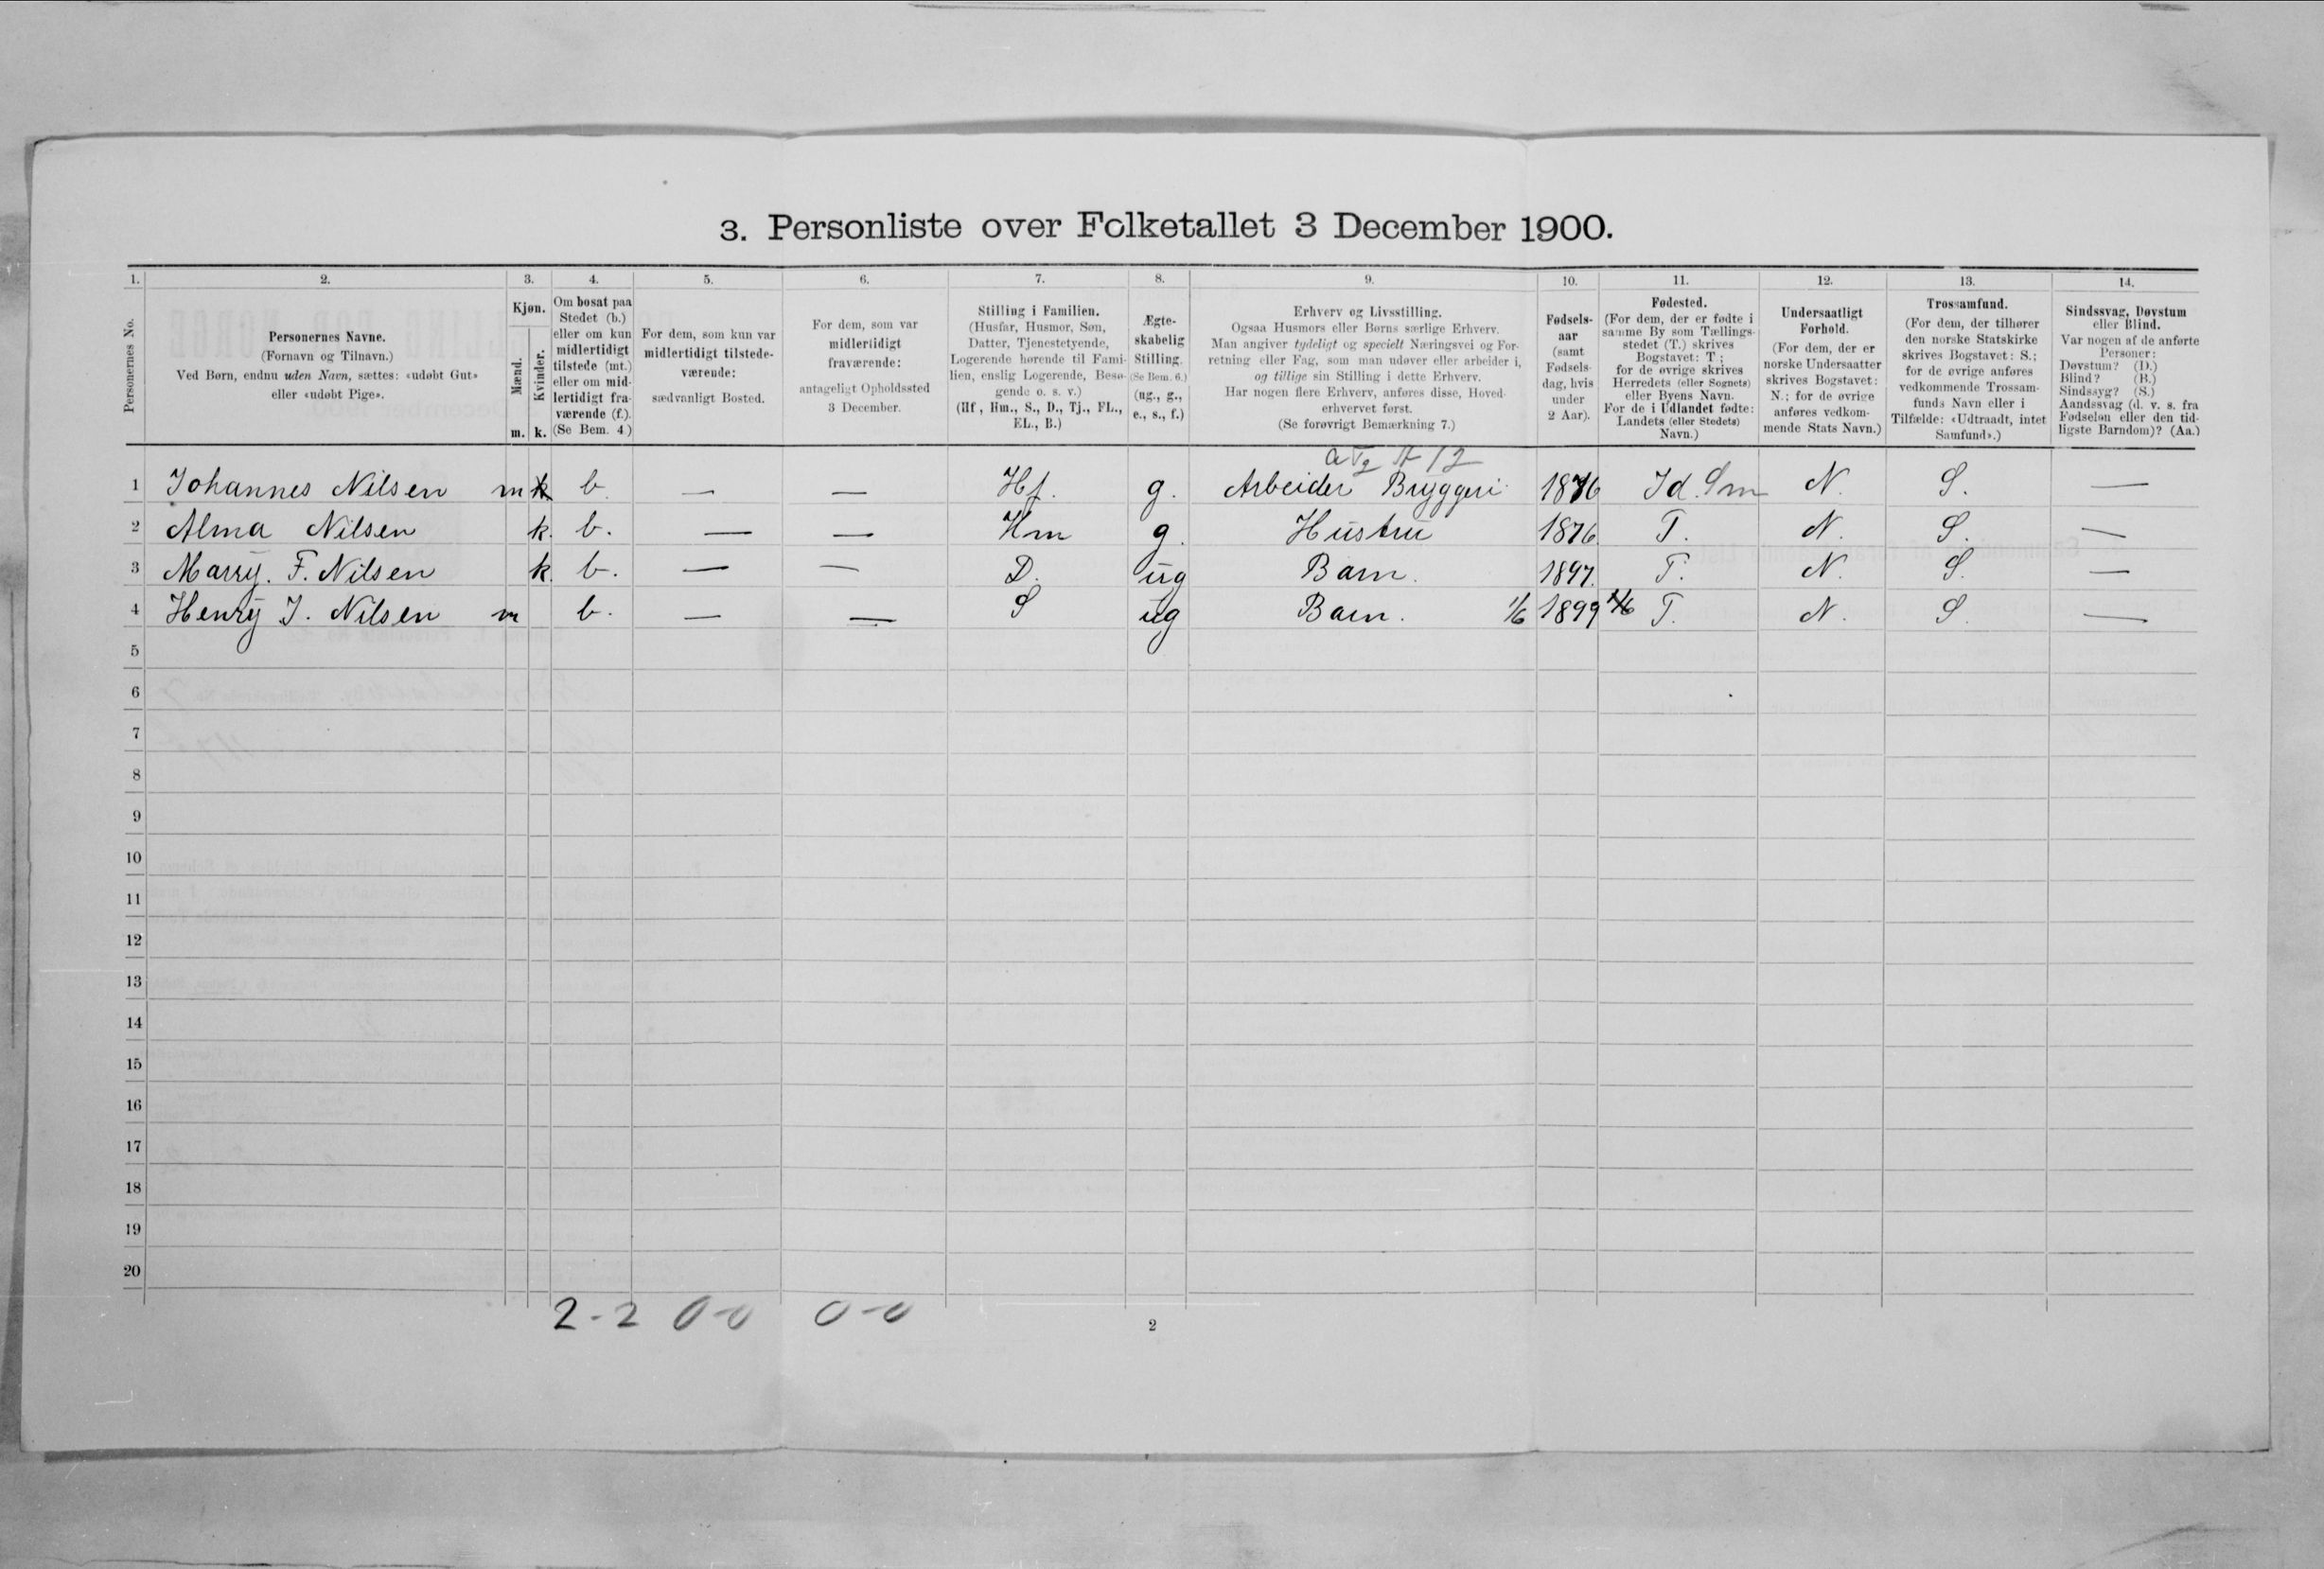 3. Personliste over Folketallet 3 December 1900.
1. 2. 3. 4. 5. 6. 7. 8. 9. 10. 11. 12. 13. 14.
Personernes No.
Personernes Navne.
(Fornavn og Tilnavn.)
Ved Børn, endnu uden Navn, sættes: «udøbt Gut»
eller «udøbt Pige».
Kjøn.
Mænd.
Kvinder.
m. k.
Om bosat paa
Stedet (b.)
eller om kun
midlertidigt
tilstede (mt.)
eller om mid-
lertidigt fra-
værende (f.).
(Se Bem. 4.)
For dem, som kun var
midlertidigt tilstede-
værende:
sædvanligt Bosted.
For dem, som var
midlertidigt
fraværende:
antageligt Opholdssted
3 December.
Stilling i Familien.
(Husfar, Husmor, Søn,
Datter, Tjenestetyende,
Logerende hørende til Fami-
lien, enslig Logerende, Besø-
gende o. s. v.)
(Hf, Hm., S., D., Tj., FL.,
EL., B.)
Ægte-
skabelig
Stilling.
(Se Bem. 6.)
(ug., g.,
e., s., f.)
Erhverv og Livsstilling.
Ogsaa Husmors eller Børns særlige Erhverv.
Man angiver tydeligt og specielt Næringsvei og For-
retning eller Fag, som man udøver eller arbeider i,
og tillige sin Stilling i dette Erhverv.
Har nogen flere Erhverv, anføres disse, Hoved-
erhvervet først.
(Se forøvrigt Bemærkning 7.)
Fødsels-
aar
(samt
Fødsels-
dag, hvis
under
2 Aar).
Fødested.
(For dem, der er fødte i
samme By som Tællings-
stedet (T.) skrives
Bogstavet: T;
for de øvrige skrives
Herredets (eller Sognets)
eller Byens Navn.
For de i Udlandet fødte:
Landets (eller Stedets)
Navn.)
Undersaatligt
Forhold.
(For dem, der er
norske Undersaatter
skrives Bogstavet:
N.; for de øvrige
anføres vedkom-
mende Stats Navn.)
Trossamfund.
(For dem, der tilhører
den norske Statskirke
skrives Bogstavet: S.;
for de øvrige anføres
vedkommende Trossam-
funds Navn eller i
Tilfælde: «Udtraadt, intet
Samfund».)
Sindssvag, Døvstum
eller Blind.
Var nogen af de anførte
Personer:
Døvstum? (D.)
Blind? (B.)
Sindssyg? (S.)
Aandssvag (d. v. s. fra
Fødselen eller den tid-
ligste Barndom)? (Aa.)
1 Johannes Nilsen m k b. — — Hf. g. Arbeider Bryggeri 1876 Id. Sm N. S. —
2 Alma Nilsen k. b. — — Hm g. Hustru 1876 T. N. S. —
3 Marry. F. Nilsen k. b. — — D. ug Barn. 1897. T. N. S. —
4 Henry J. Nilsen m b. — — S ug Barn. 1/6 1899 1/6 T. N. S. —
5
6
7
8
9
10
11
12
13
14
15
16
17
18
19
20
2-2 0-0 0-0
2